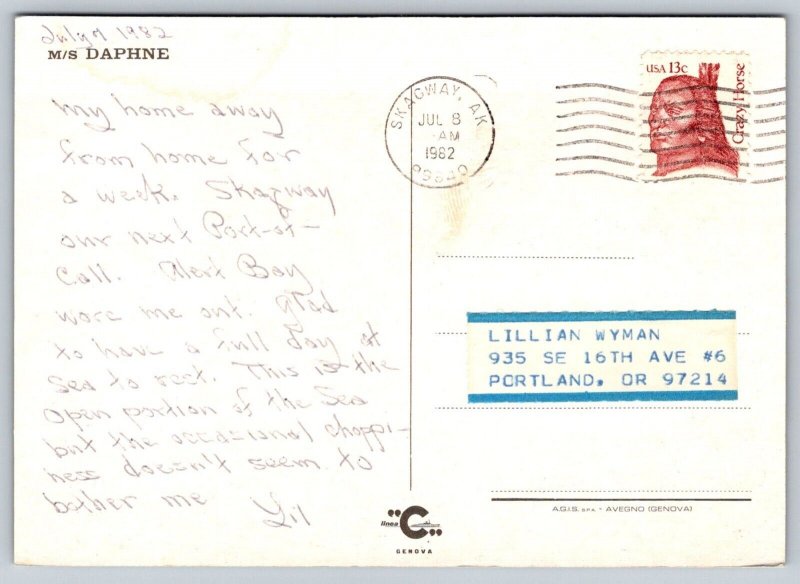 July 7 1982
M/S DAPHNE
My home away
from home for
a week. Skagway
our next Port-of-
Call. Alert Bay
wore me out. Glad
to have a full day at
Sea to rest. This is the
Open portion of the Sea
but the occasional choppi-
ness doesn't seem to
bother me Lil
SKAGWAY, AK
JUL 8
AM
1982
99840
USA 13c
Crazy Horse
LILLIAN WYMAN
935 SE 16TH AVE #6
PORTLAND, OR 97214
A.G.I.S. S.P.A. - AVEGNO (GENOVA)
linea "C"
GENOVA